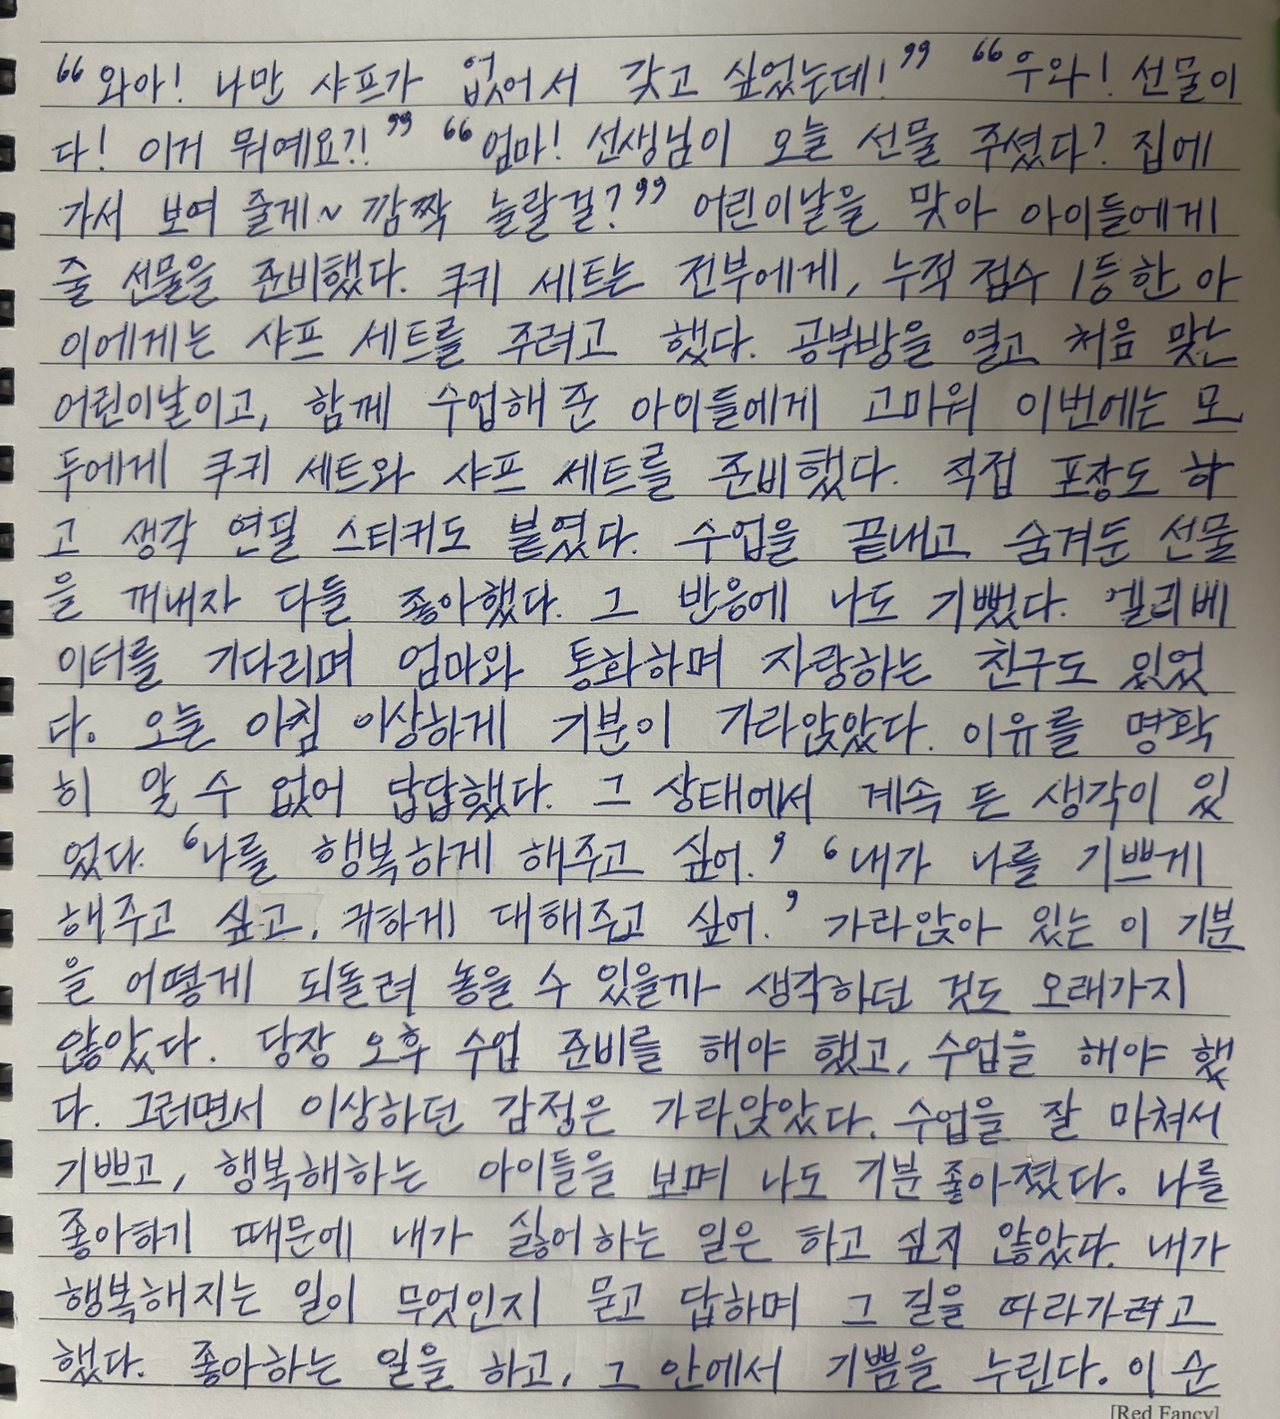 “와아! 나만 샤프가 없어서 갖고 싶었는데!” “우와! 선물이
다! 이거 뭐예요?!” “엄마! 선생님이 오늘 선물 주셨다? 집에
가서 보여 줄게~ 깜짝 놀랄걸?” 어린이날을 맞아 아이들에게
줄 선물을 준비했다. 쿠키 세트는 전부에게, 누적 점수 1등한 아
이에게는 샤프 세트를 주려고 했다. 공부방을 열고 처음 맞는
어린이날이고, 함께 수업해 준 아이들에게 고마워 이번에는 모
두에게 쿠키 세트와 샤프 세트를 준비했다. 직접 포장도 하
고 생각 연필 스티커도 붙였다. 수업을 끝내고 숨겨둔 선물
을 꺼내자 다들 좋아했다. 그 반응에 나도 기뻤다. 엘리베
이터를 기다리며 엄마와 통화하며 자랑하는 친구도 있었
다. 오늘 아침 이상하게 기분이 가라앉았다. 이유를 명확
히 알 수 없어 답답했다. 그 상태에서 계속 든 생각이 있
었다. ‘나를 행복하게 해주고 싶어.’ ‘내가 나를 기쁘게
해주고 싶고, 귀하게 대해주고 싶어.’ 가라앉아 있는 이 기분
을 어떻게 되돌려 놓을 수 있을까 생각하던 것도 오래가지
않았다. 당장 오후 수업 준비를 해야 했고, 수업을 해야 했
다. 그러면서 이상하던 감정은 가라앉았다. 수업을 잘 마쳐서
기쁘고, 행복해하는 아이들을 보며 나도 기분 좋아졌다. 나를
좋아하기 때문에 내가 싫어하는 일은 하고 싶지 않았다. 내가
행복해지는 일이 무엇인지 묻고 답하며 그 길을 따라가려고
했다. 좋아하는 일을 하고, 그 안에서 기쁨을 누린다. 이 순
[Red Fancy]